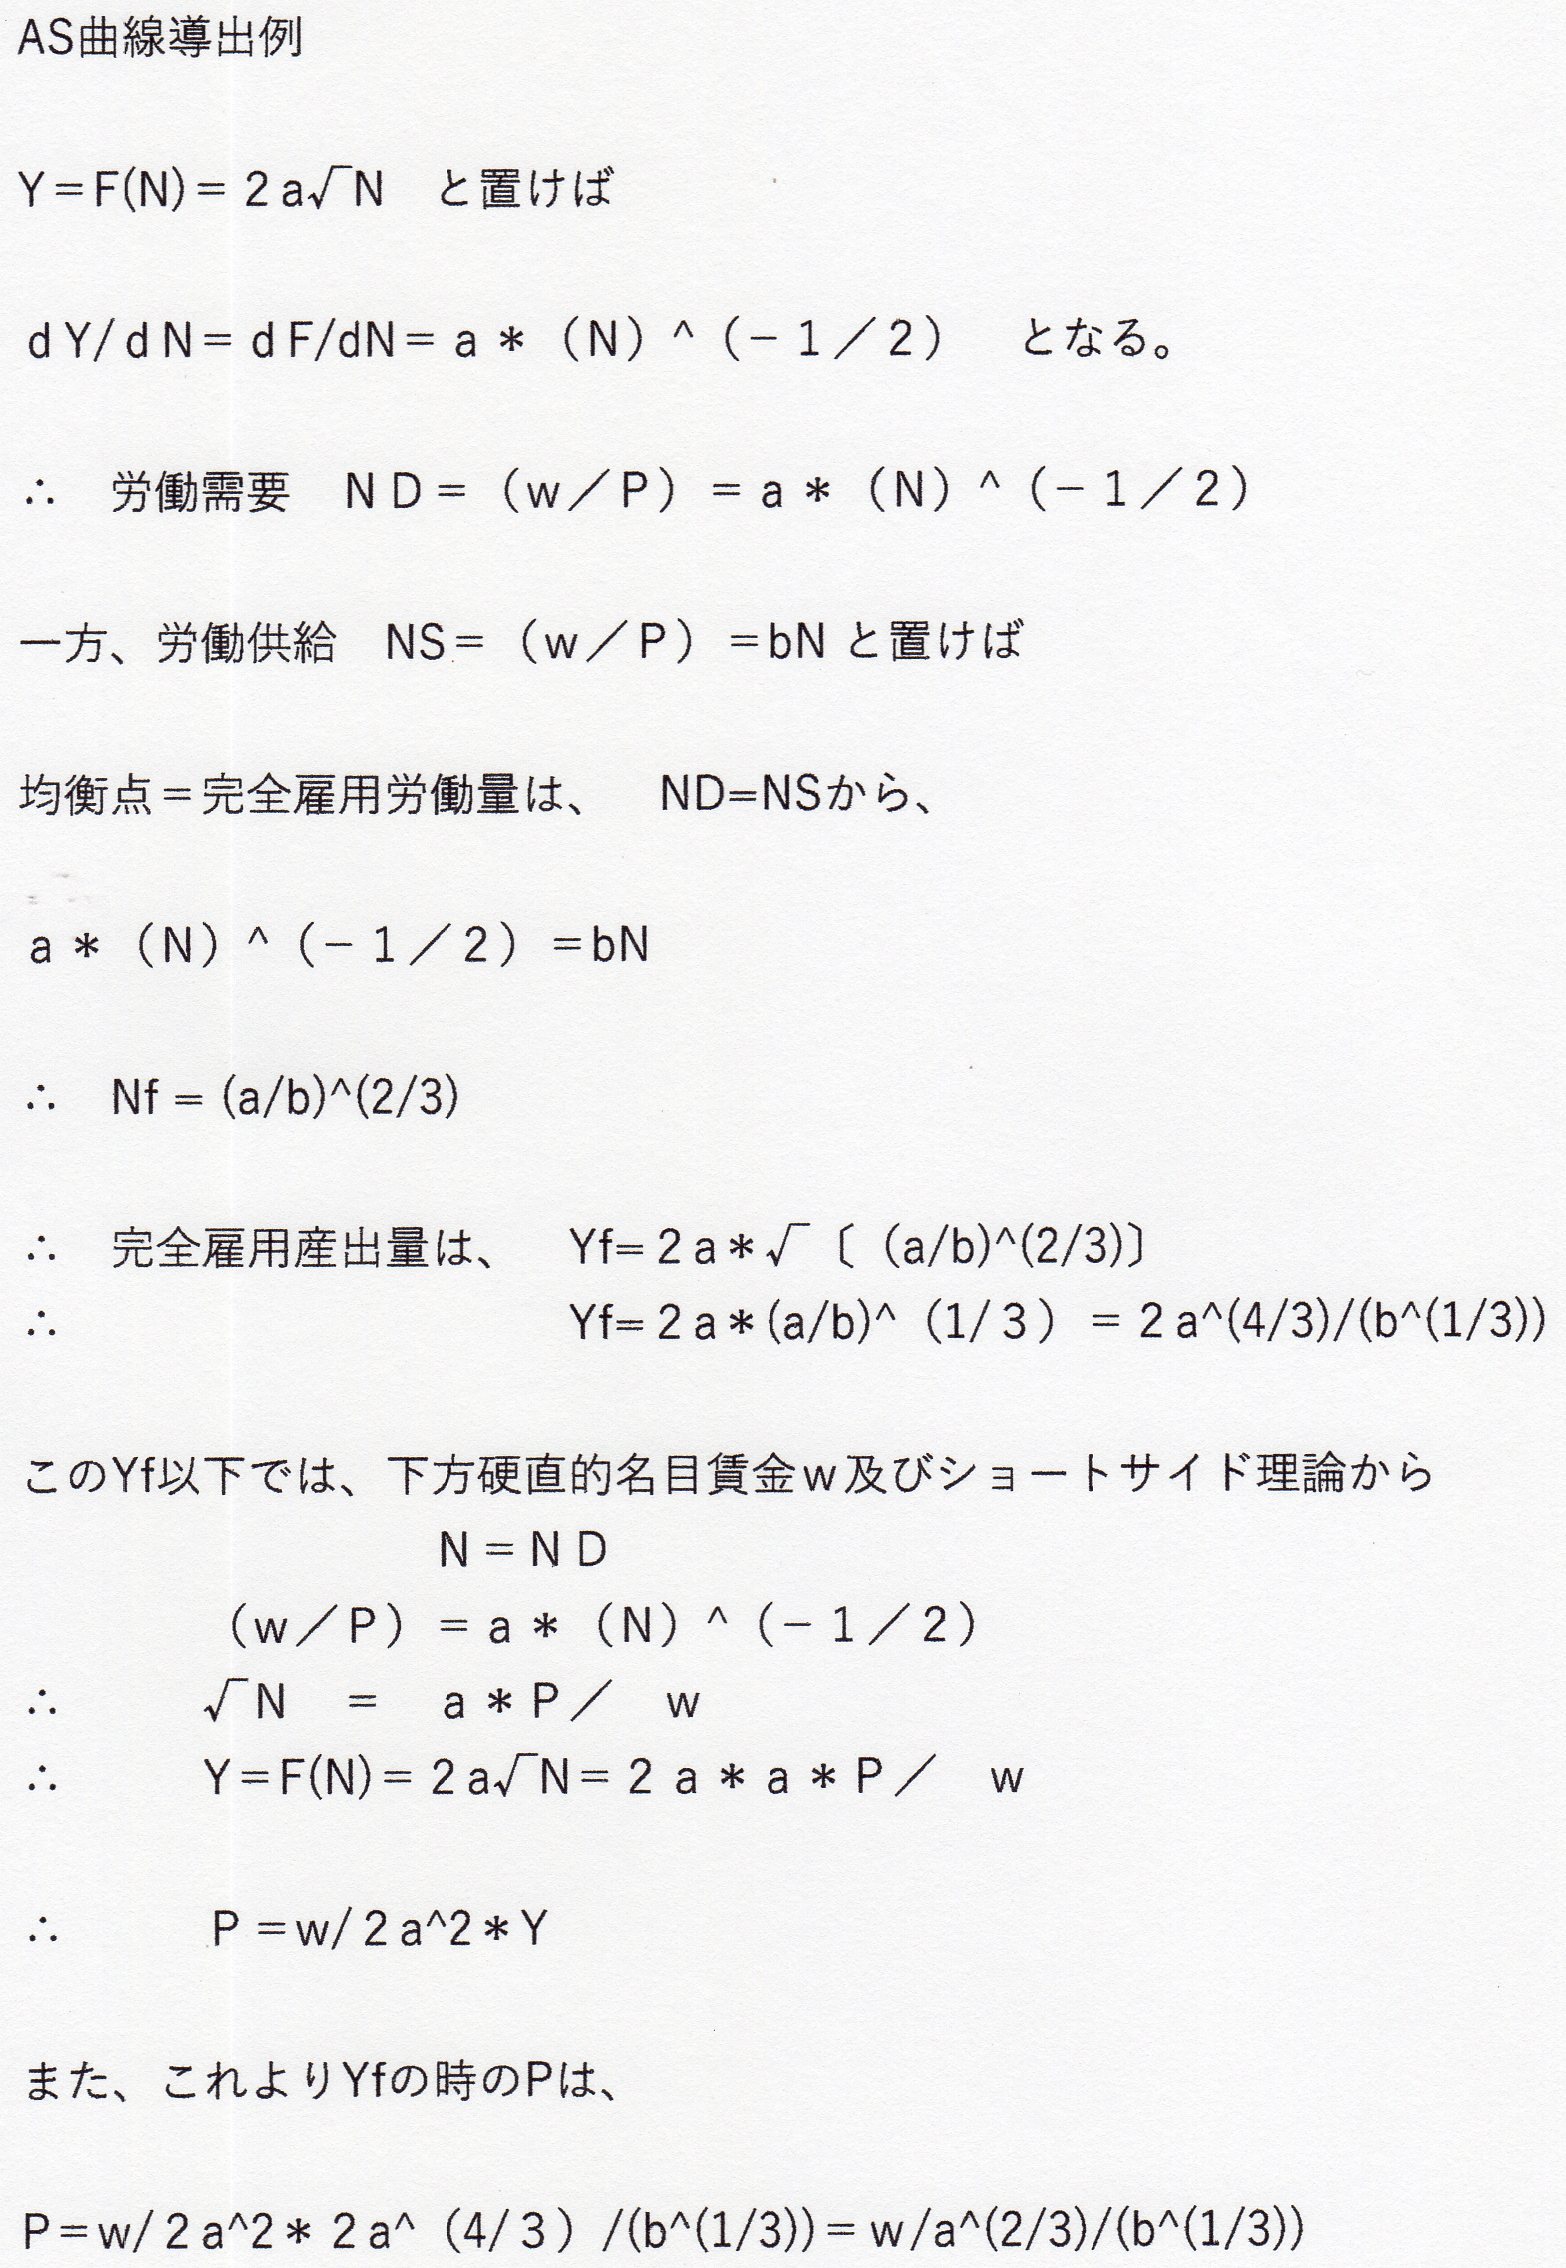 AS曲線導出例
Y＝F(N)＝２a√N　と置けば
ｄY/ｄN＝ｄF/dN＝ａ＊（N）^（－１／２）　となる。
∴　労働需要　ＮＤ＝（w／P）＝ａ＊（N）^（－１／２）
一方、労働供給　NS＝（w／P）＝bN と置けば
均衡点＝完全雇用労働量は、　ND=NSから、
ａ＊（N）^（－１／２）＝bN
∴　Nf = (a/b)^(2/3)
∴　完全雇用産出量は、　Yf=２a＊√〔（a/b)^(2/3)〕
∴　Yf=２a＊(a/b)^（1/３）＝２a^(4/3)/(b^(1/3))
このYf以下では、下方硬直的名目賃金ｗ及びショートサイド理論から
N＝ＮＤ
（w／P）＝ａ＊（N）^（－１／２）
∴　√N　＝　ａ＊P／　w
∴　Y＝F(N)＝２a√N＝２ａ＊ａ＊P／　w
∴　P＝w/２a^2＊Y
また、これよりYfの時のPは、
P＝w/２a^2＊２a^（4/３）/(b^(1/3))＝w/a^(2/3)/(b^(1/3))